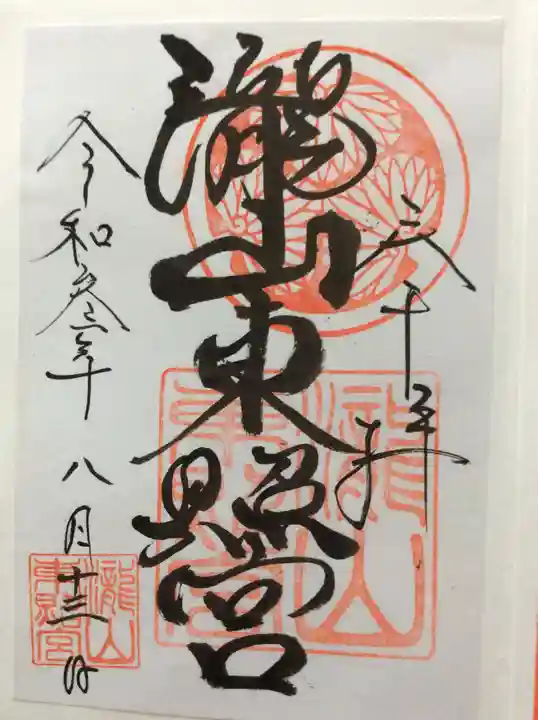 奉拝
瀧山東照宮
瀧山
東照宮
令和参年八月十三日
瀧山
東照宮